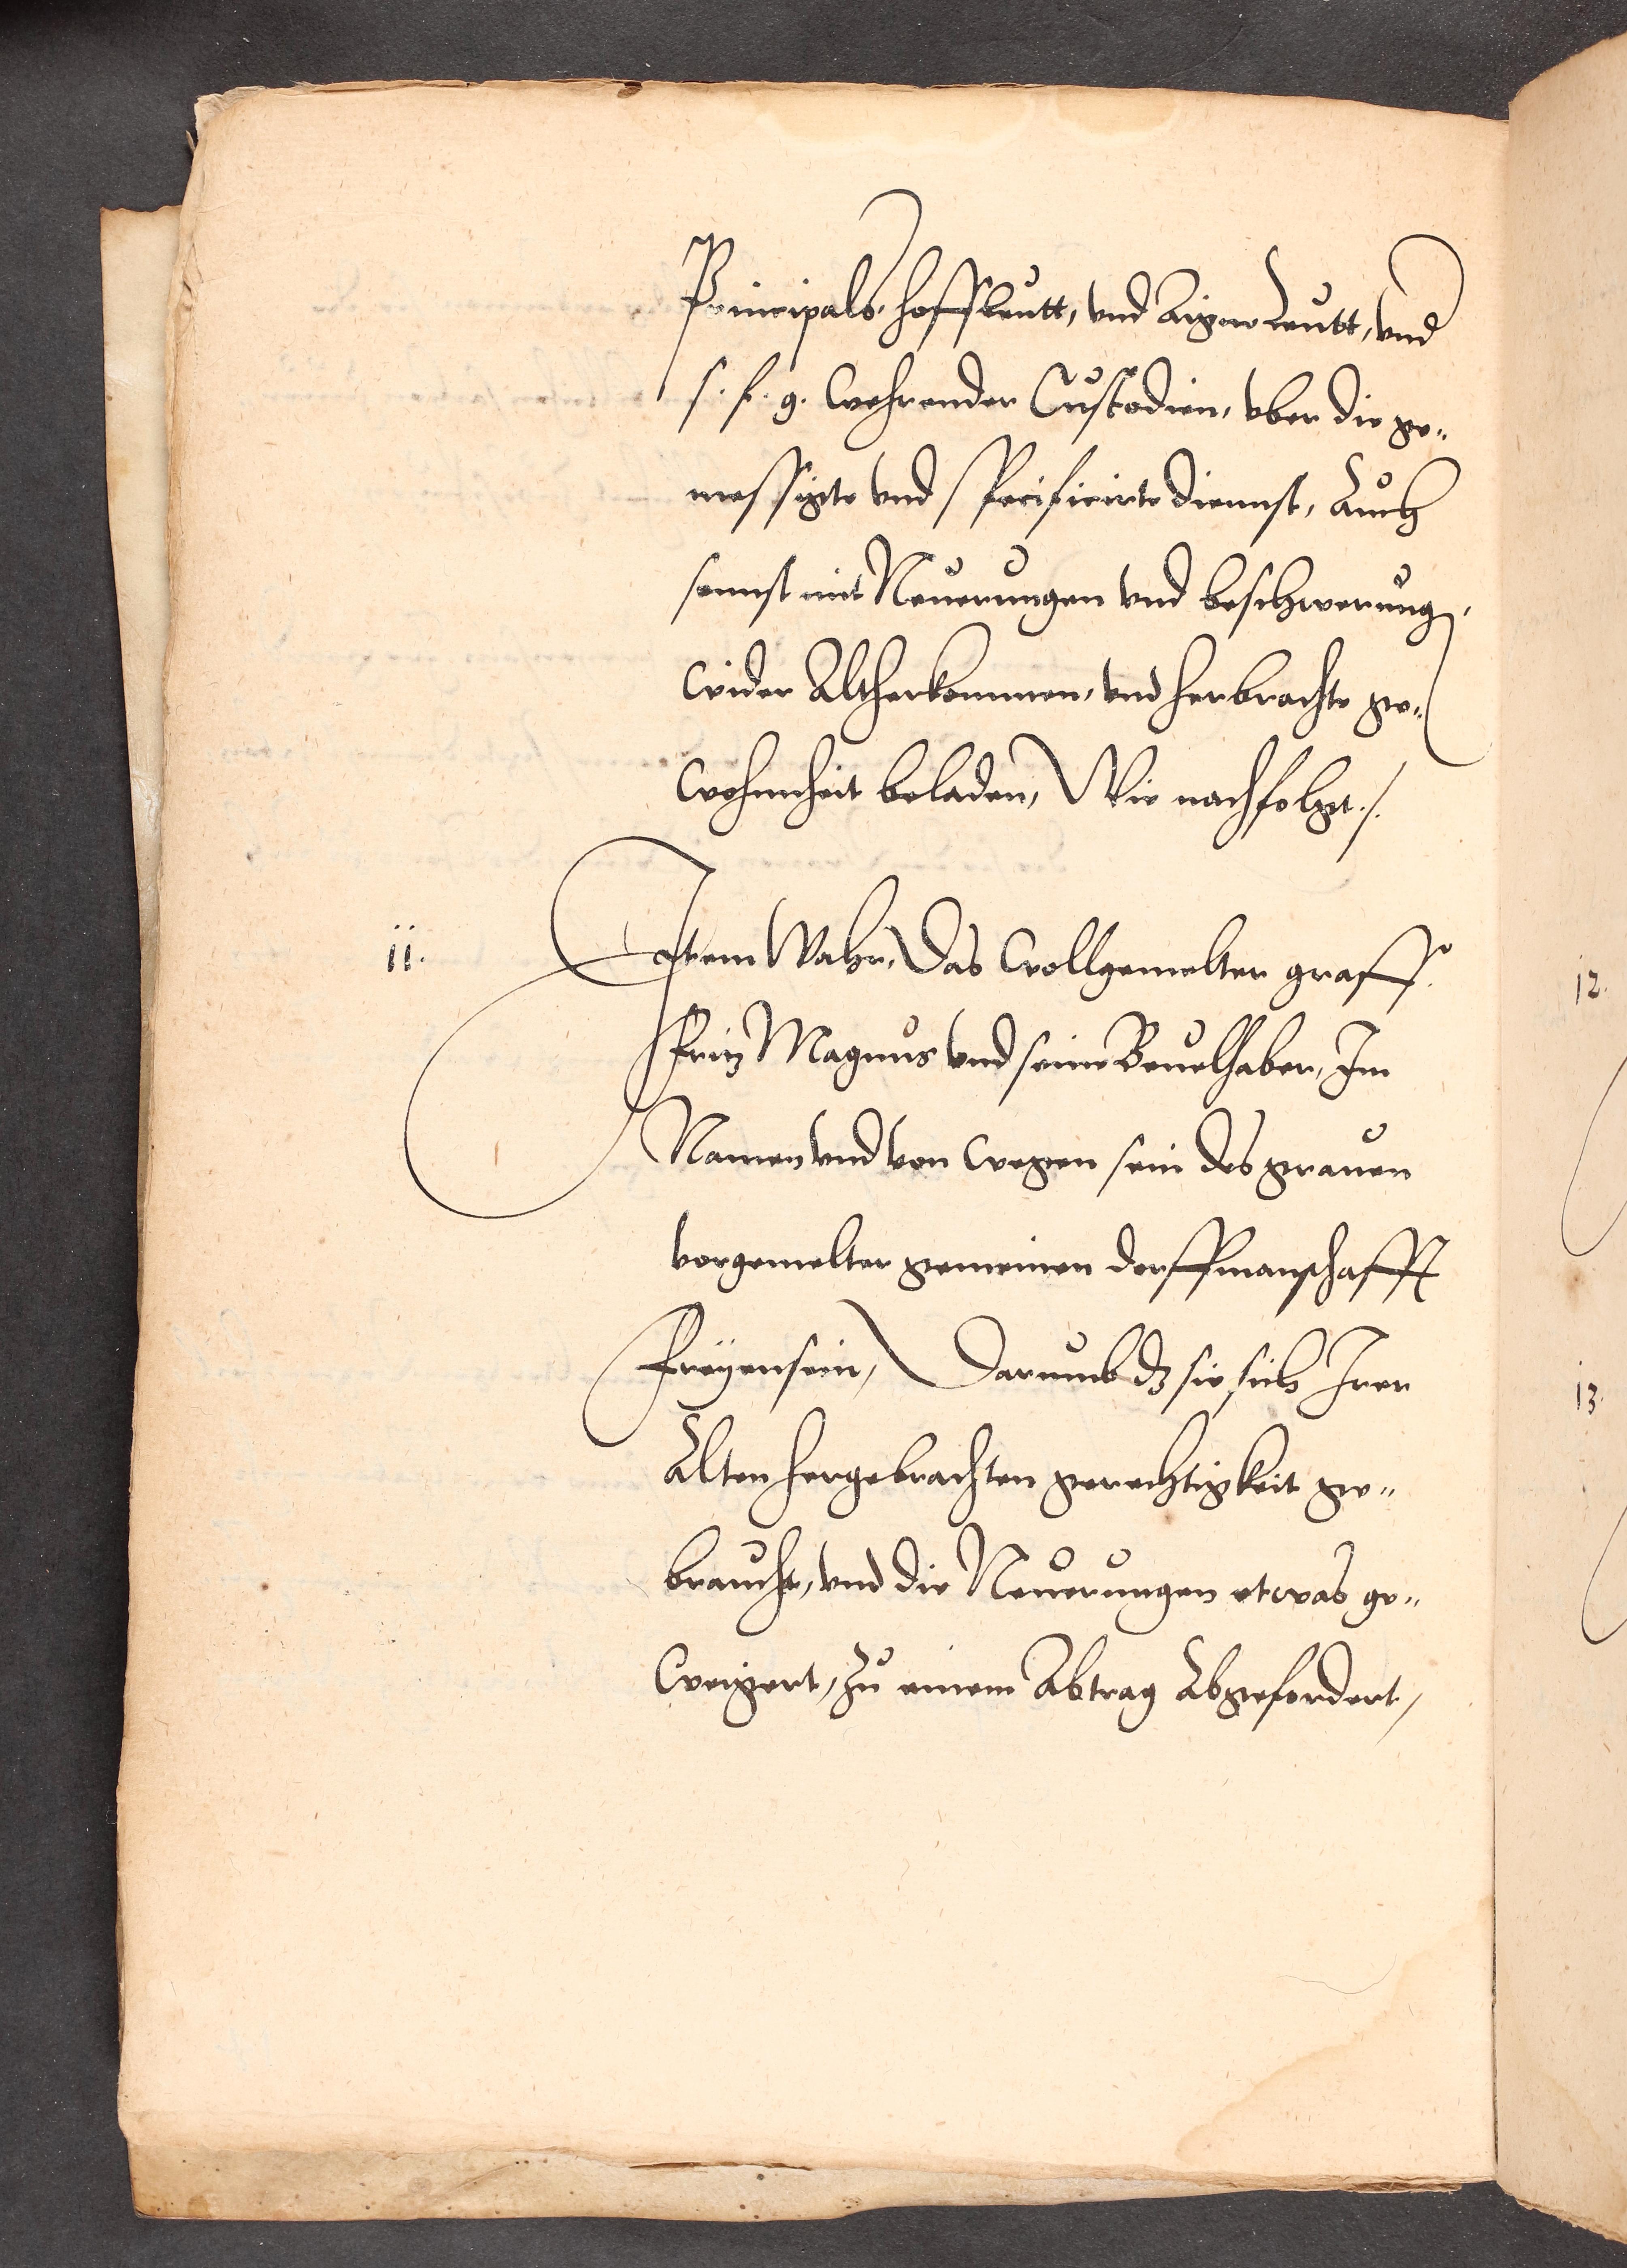 Principals hoffleutt, vnd Aigne Leutt, vnd
s. f. g. wehrender Custodien, vber die ge-
messigte vnd specificirte diennst, Auch
sonnst mit Neuerungen vnd beschwerung,
wider Altherkommen, vnd herbrachte ge-
wohnheit beladen, Wie nachfolgt ./.
11.
Item Wahr, Das wollgemelter graff
Fritz Magnus vnd seine Beuelhaber, Im
Namen vnd von wegen sein des grauen
vorgemelter gemeinen dorffmanschafft
Freyensein, Darumb dz sie sich Irer
Alten hergebrachten gerechtigkeit ge-
braucht, vnd die Neuerungen etwas ge-
weigert, zu einem Abtrag Abgefordert,
12.
13.